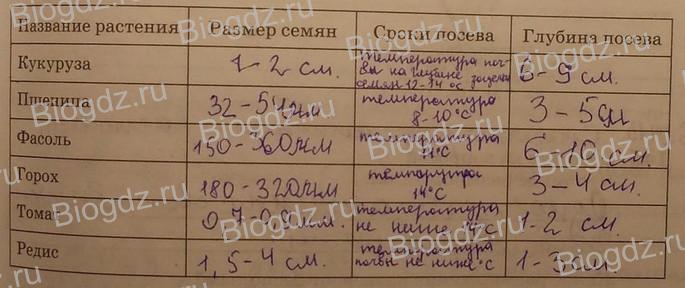 Название растения Размер семян Сроки посева Глубина посева
Кукуруза 1-2 см. температура поч-
вы на глубине заделки
семян 12-14 °С 6-9 см.
Пшеница температура
8-10°С 3-5
Фасоль 150-360 мм температура
°С 6-10 см.
Горох 180-320 мм
14°С 3-4 см.
Томат температура
не ниже 1-2 см.
Редис 1,5-4 см. температура
не ниже °С 1-3 см.
Biogdz.ru
Biogdz.ru
Biogdz.ru
Biogdz.ru
Biogdz.ru
Biogdz.ru
Biogdz.ru
Biogdz.ru
Biogdz.ru